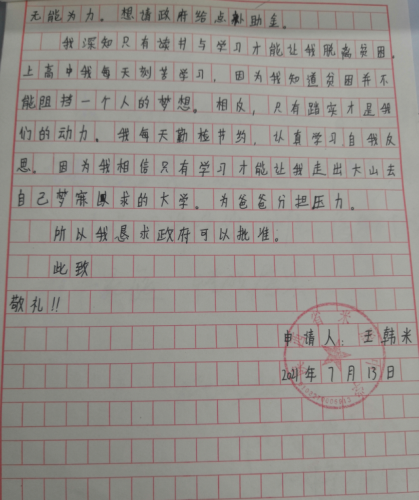 无能为力。想请政府给点补助金。
我深知只有读书与学习才能让我脱离贫困。
上高中我每天刻苦学习，因为我知道贫困并不
能阻挡一个人的梦想。相反，只有踏实才是我
们的动力。我每天勤检节约，认真学习自我反
思。因为我相信只有学习才能让我走出大山去
自己梦寐以求的大学。为爸爸分担压力。
所以我恳求政府可以批准。
此致
敬礼!!
申请人：王韩米
2021年7月13日